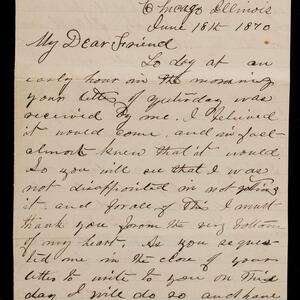 Chicago Illinois
June 18th 1870
My Dear Friend
To day at an
early hour in the morning
your letter of yesterday was
received by me. I believed
it would come. and in fact
almost knew that it would
So you will see that I was
not disappointed in not getting
it. and for all of this I must
thank you from the very bottom
of my heart. As you reques
ted me in the close of your
letter to write to you on this
day I will do so and have